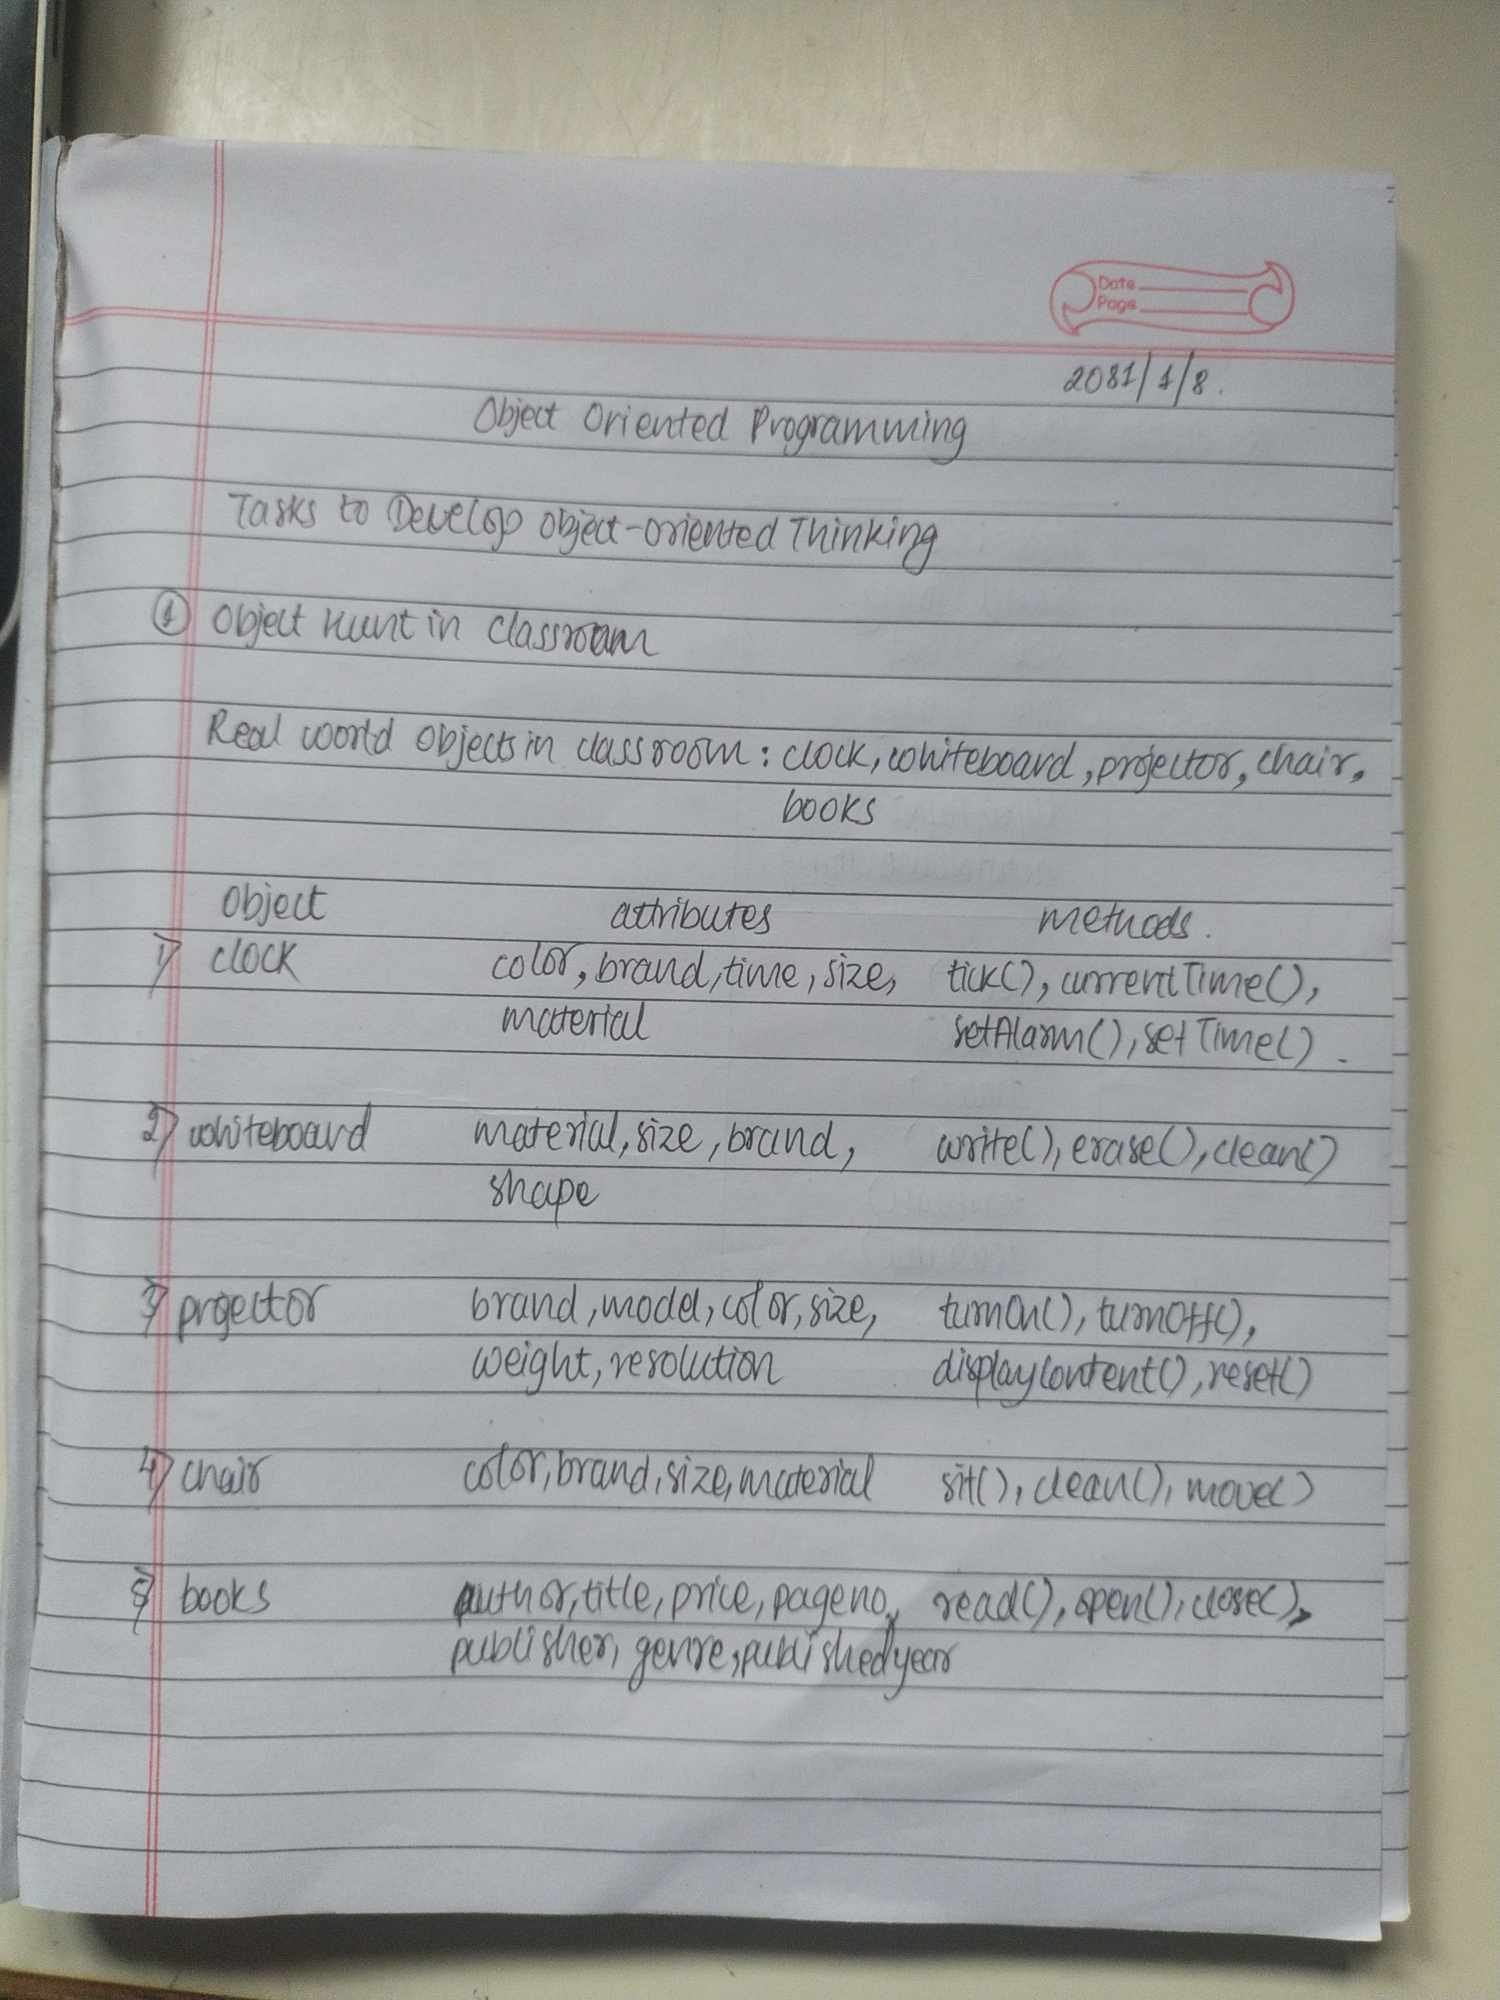 Date
Page
2081/1/8.
Object Oriented Programming
Tasks to Develop Object-Oriented Thinking
① Object Hunt in Classroom
Real world objects in classroom: clock, whiteboard, projector, chair,
books
Object attributes methods.
1) clock color, brand, time, size, tick(), currentTime(),
material setAlarm(), setTime().
2) whiteboard material, size, brand, write(), erase(), clean()
shape
3) projector brand, model, color, size, turnOn(), turnOff(),
weight, resolution displayContent(), reset()
4) chair color, brand, size, material sit(), clean(), move()
5) books author, title, price, pageno, read(), open(), close(),
publisher, genre, publishedyear